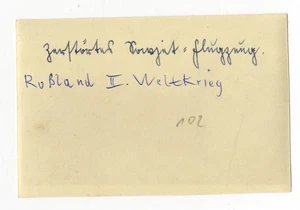 zerstörtes Sowjet-Flugzeug.
Rußland II. Weltkrieg
102